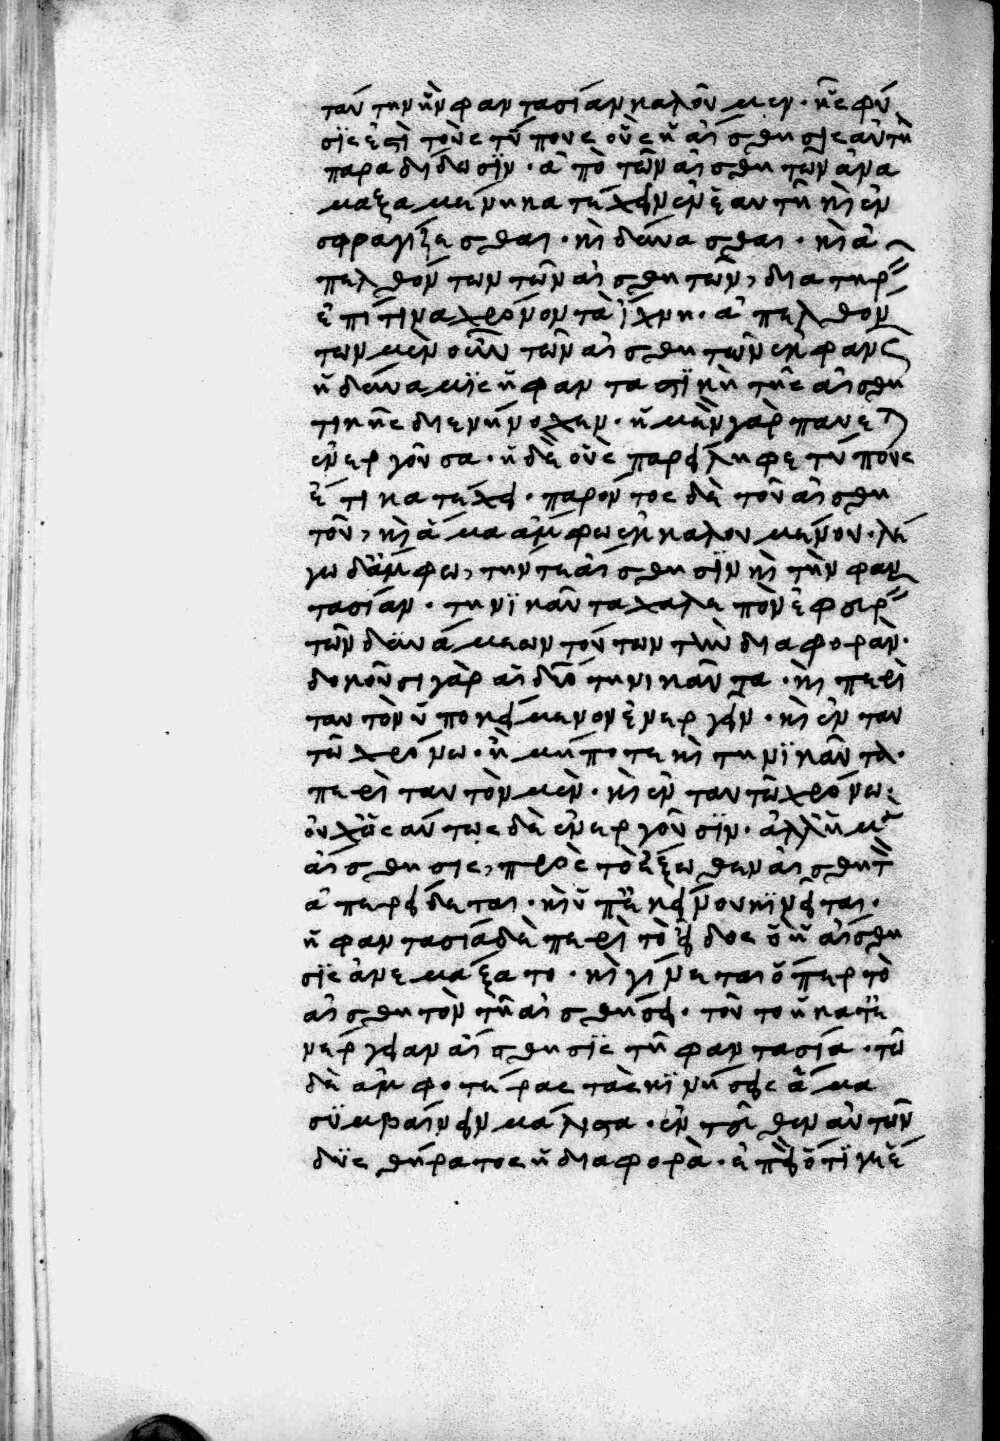 ταύτην ἣν φαντασίαν καλοῦμεν· ἧς φύ
σις ἐστὶ τοὺς τύπους οὓς ἡ αἴσθησις αὐτῇ
παραδίδωσιν· ἀπὸ τῶν αἰσθητῶν ἀνα
μαξαμένη κατέχειν ἐν ἑαυτῇ καὶ ἐν
σφραγίζεσθαι· καὶ δύνασθαι· καὶ ἀ
πελθόντων τῶν αἰσθητῶν, διατηρεῖν
ἐπί τινα χρόνον τὰ ἴχνη· ἀπελθόν
των μὲν οὖν τῶν αἰσθητῶν ἐκφανὴς
ἡ δύναμις ἡ φανταστικὴ τῆς αἰσθη
τικῆς διενήνοχεν· ἡ μὲν γὰρ παύεται
ἐνεργοῦσα· ἡ δὲ οὓς παρείληφε τύπους
ἔτι κατέχει· παρόντος δὲ τοῦ αἰσθη
τοῦ, καὶ ἅμα ἄμφω ἐκκαλουμένου· λέ
γω δ' ἄμφω, τήν τε αἴσθησιν καὶ τὴν φαν
τασίαν· τηνικαῦτα χαλεπὸν ἐφευρεῖν
τῶν δυνάμεων τούτων τὴν διαφοράν·
δοκοῦσι γὰρ αἱ δύο τηνικαῦτα· καὶ περὶ
ταυτὸν ὑποκείμενον ἐνεργεῖν· καὶ ἐν ταυ
τῷ χρόνω· ἢ μήποτε καὶ τηνικαῦτα·
περὶ ταυτὸν μὲν· καὶ ἐν ταυτῶ χρόνω·
οὐχ ὡσαύτως δὲ ἐνεργοῦσιν· ἀλλ' ἡ μὲν
αἴσθησις, πρὸς τὸ ἔξωθεν αἰσθητὸν
ἀπερείδεται· καὶ ὑπ' ἐκείνου κινεῖται·
ἡ φαντασία δὲ περὶ τὸ εἶδος ὃ ἡ αἴσθη
σις ἀνεμάξατο· καὶ γίνεται ὅπερ τὸ
αἰσθητὸν τῇ αἰσθήσει· τοῦτο ἡ κατ' ἐ
νέργειαν αἴσθησις τῇ φαντασία· τῶ
δὲ ἀμφοτέρας τὰς κινήσεις ἅμα
συμβαίνειν μάλιστα· ἐντεῦθεν αὐτῶν
δυσθήρατος ἡ διαφορὰ· ἐπεὶ ὅτι γε